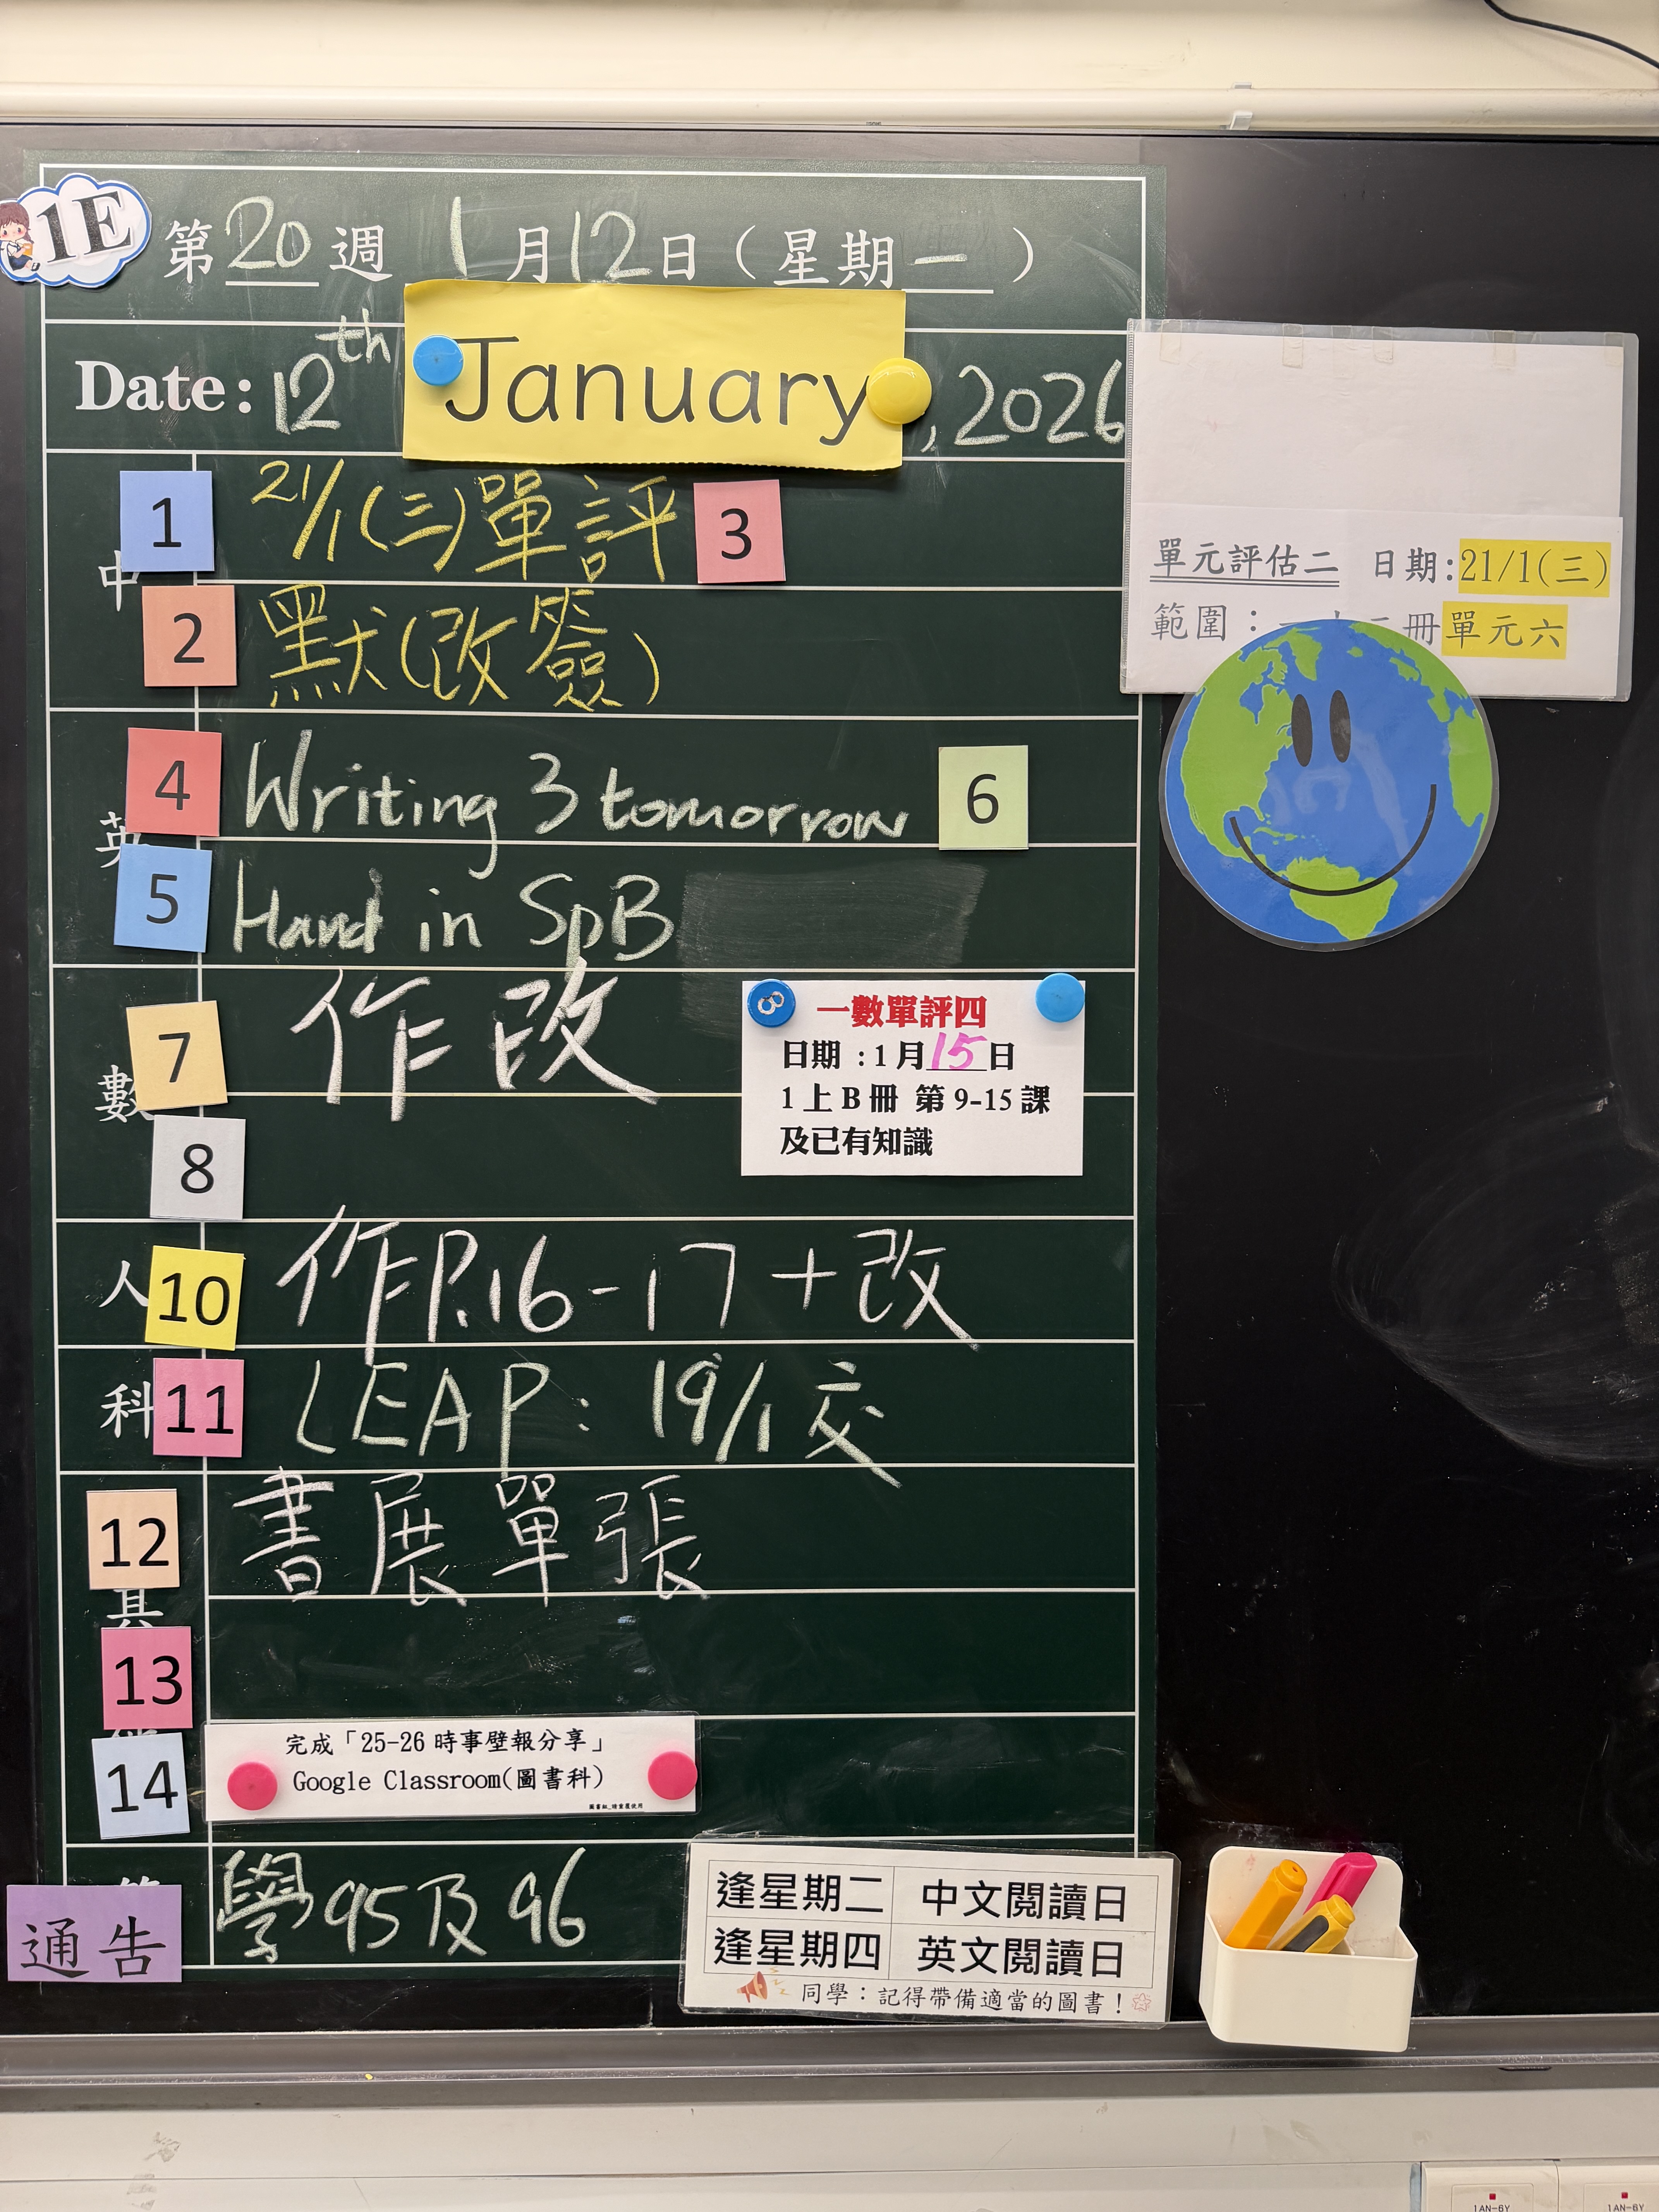 1E
第20週 1月12日（星期一）
Date: 12th January, 2026
中
1 21/1(三)單評 3
2 默(改簽)
單元評估二 日期:21/1(三)
範圍： 冊單元六
英
4 Writing 3 tomorrow 6
5 Hand in SpB
數
7 作改
8
一數單評四
日期：1月15日
1上B冊 第9-15課
及已有知識
人 10 作P.16-17+改
科 11 LEAP: 19/1交
12 書展單張
其
13
14
完成「25-26時事壁報分享」
Google Classroom(圖書科)
通告 學95及96
逢星期二 中文閱讀日
逢星期四 英文閱讀日
同學：記得帶備適當的圖書！
1AN-6Y 1AN-6Y